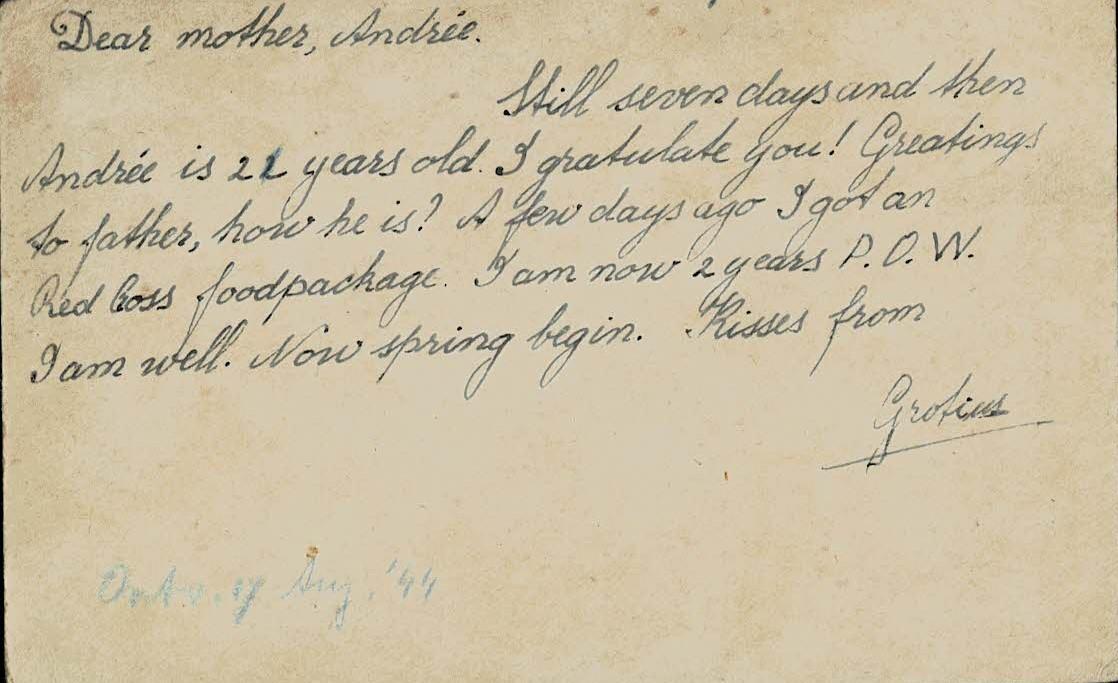 Dear mother, Andrée.
Still seven days and then
Andrée is 21 years old. I gratulate you! Greatings
to father, how he is? A few days ago I got an
Red Coss foodpackage. I am now 2 years P.O.W.
I am well. Now spring begin. Kisses from
Grotius
Ontv. 17 Aug. '44